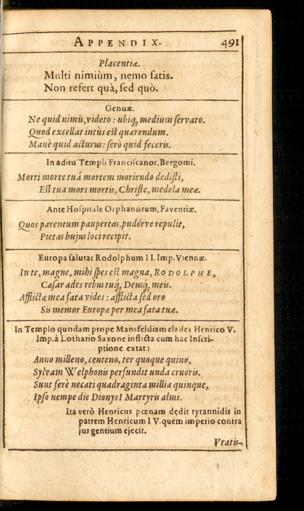 APPENDIX. 491
Placentiæ.
Multi nimiùm, nemo satis.
Non refert quà, sed quò.
Genuæ.
Ne quid nimis, videto: ubiq, medium servato.
Quod excellat intùs est quærendum.
Manè quid acturus: serò quid feceris.
In aditu Templi Franciscanor. Bergomi.
Morti morte tuâ mortem moriendo dedisti,
Est tua mors mortis, Christe, medela meæ.
Ante Hospitale Orphanorum, Faventiæ.
Quos parentum paupertas, pudórve repulit,
Pietas hujus loci recipit.
Europa salutat Rodolphum II. Imp. Viennæ.
In te, magne, mihi spes est magna, RODOLPHE,
Cæsar ades rebus tuq́, Deusq́, meis.
Afflicta mea fata vides: afflicta sed oro
Sis memor Europæ per mea fata tuæ.
In Templo quodam prope Mansfeldiam clades Henrico V.
Imp. à Lothario Saxone inflicta cum hac Inscri-
ptione extat:
Anno milleno, centeno, ter quoque quino,
Sylvam Welphonis perfundit unda cruoris.
Sunt ferè necati quadraginta millia quinque,
Ipso nempe die Dionysî Martyris almi.
Ita verò Henricus pœnam dedit tyrannidis in
patrem Henricum IV. quem imperio contra
jus gentium ejecit.
Vratis-